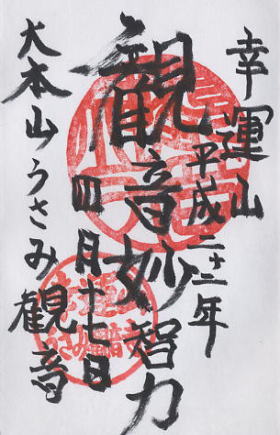 幸運山
平成二十二年
観音妙智力
四月十七日
大本山うさみ観音